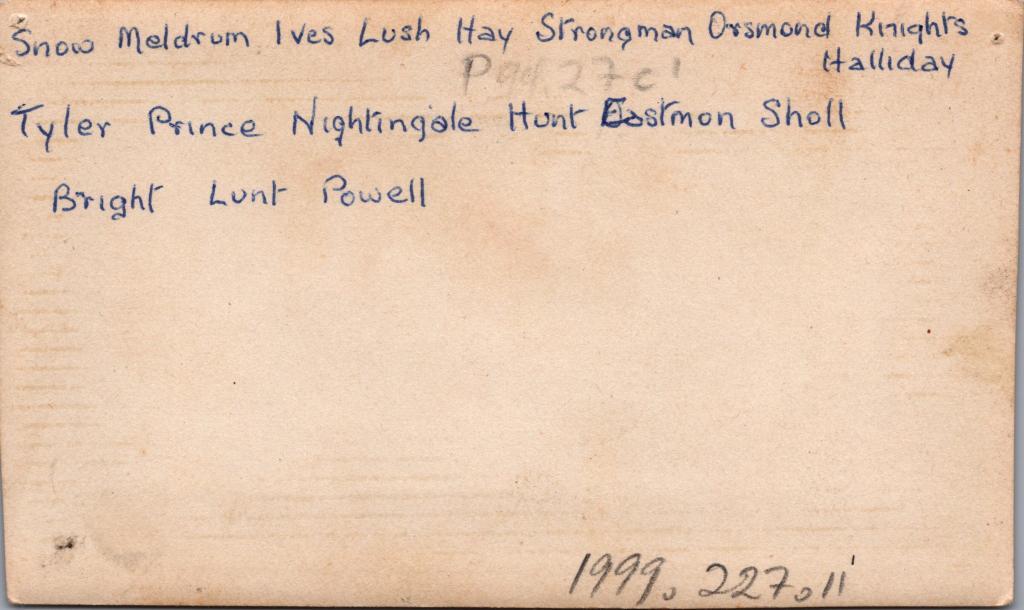 Snow Meldrum Ives Lush Hay Strongman Orsmond Knights
Halliday
Tyler Prince Nightingale Hunt Eastmon Sholl
Bright Lunt Powell
1999. 227. 11